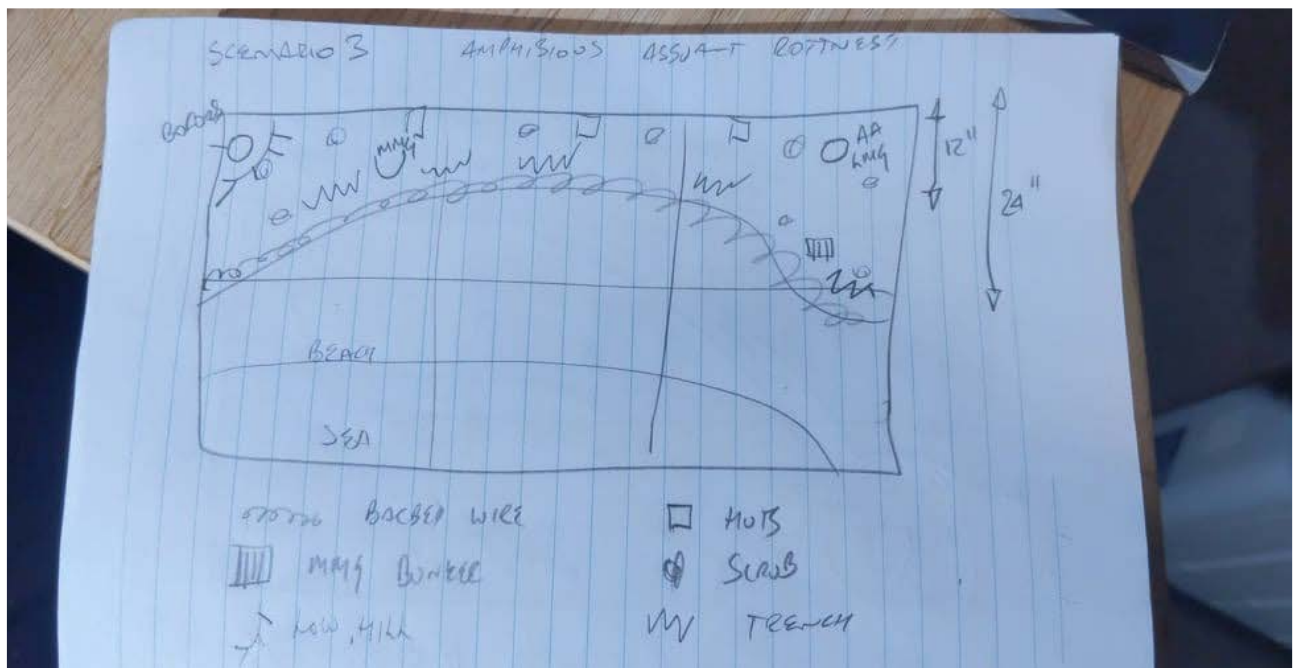 SCENARIO 3 AMPHIBIOUS ASSUAT ROTTNEST
BOFORS
MMG
AA
LMG
12"
24"
BEACH
SEA
BARBED WIRE
HUTS
MMG BUNKER
SCRUB
LOW HILL
TRENCH